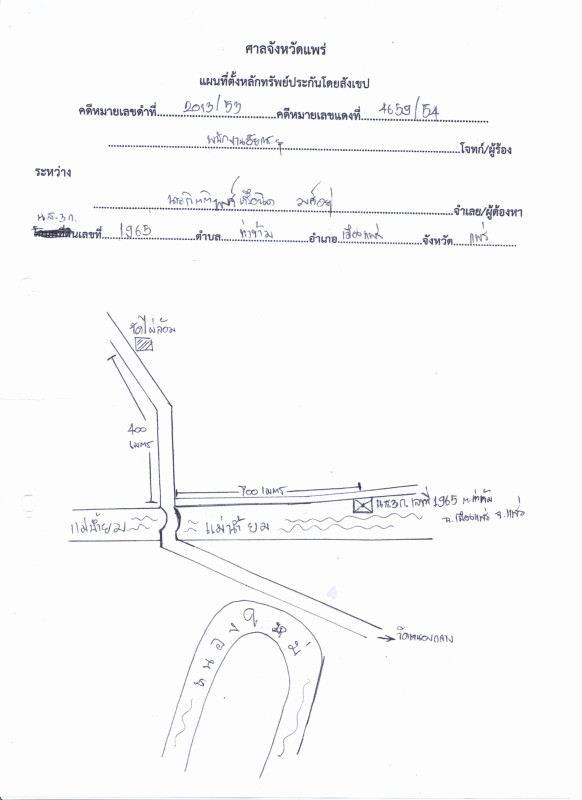 ศาลจังหวัดแพร่
แผนที่ตั้งหลักทรัพย์ประกันโดยสังเขป
คดีหมายเลขดำที่ 2013/53 คดีหมายเลขแดงที่ 4659/54
พนักงานอัยการ โจทก์/ผู้ร้อง
ระหว่าง
จำเลย/ผู้ต้องหา
น.ส.3ก.
เลขที่ 1965 ตำบล ท่าข้าม อำเภอ เมืองแพร่ จังหวัด แพร่
วัดไผ่ล้อม
400
เมตร
700 เมตร
น.ส.3ก. เลขที่ 1965 ต.ท่าข้าม
อ.เมืองแพร่ จ.แพร่
แม่น้ำยม แม่น้ำยม
วัดหนองกลาง
หนองใหม่